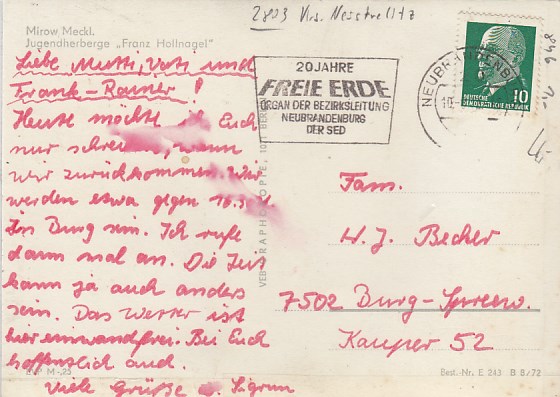 2803 Krs. Neustrelitz
Mirow Meckl.
Jugendherberge „Franz Hollnagel"
Liebe Mutti, Vati und
Frank-Rainer!
Heute möchte ich Euch
nur schreiben, wann
wir zurückkommen. Wir
werden etwa gegen 16.30
in Burg sein. Ich rufe
dann mal an. Die Zeit
kann ja auch anders
sein. Das Wetter ist
hier einwandfrei. Bei Euch
hoffentlich auch.
Viele Grüße Sigrun
M-25
VEB BERLIN
20 JAHRE
FREIE ERDE
ORGAN DER BEZIRKSLEITUNG
NEUBRANDENBURG
DER SED
NEUBRANDENB
10
DEUTSCHE
DEMOKRATISCHE REPUBLIK
10
Fam.
H. J. Becher
7502 Burg-Spreew.
Kauper 52
Best.-Nr. E 243 B 8/72